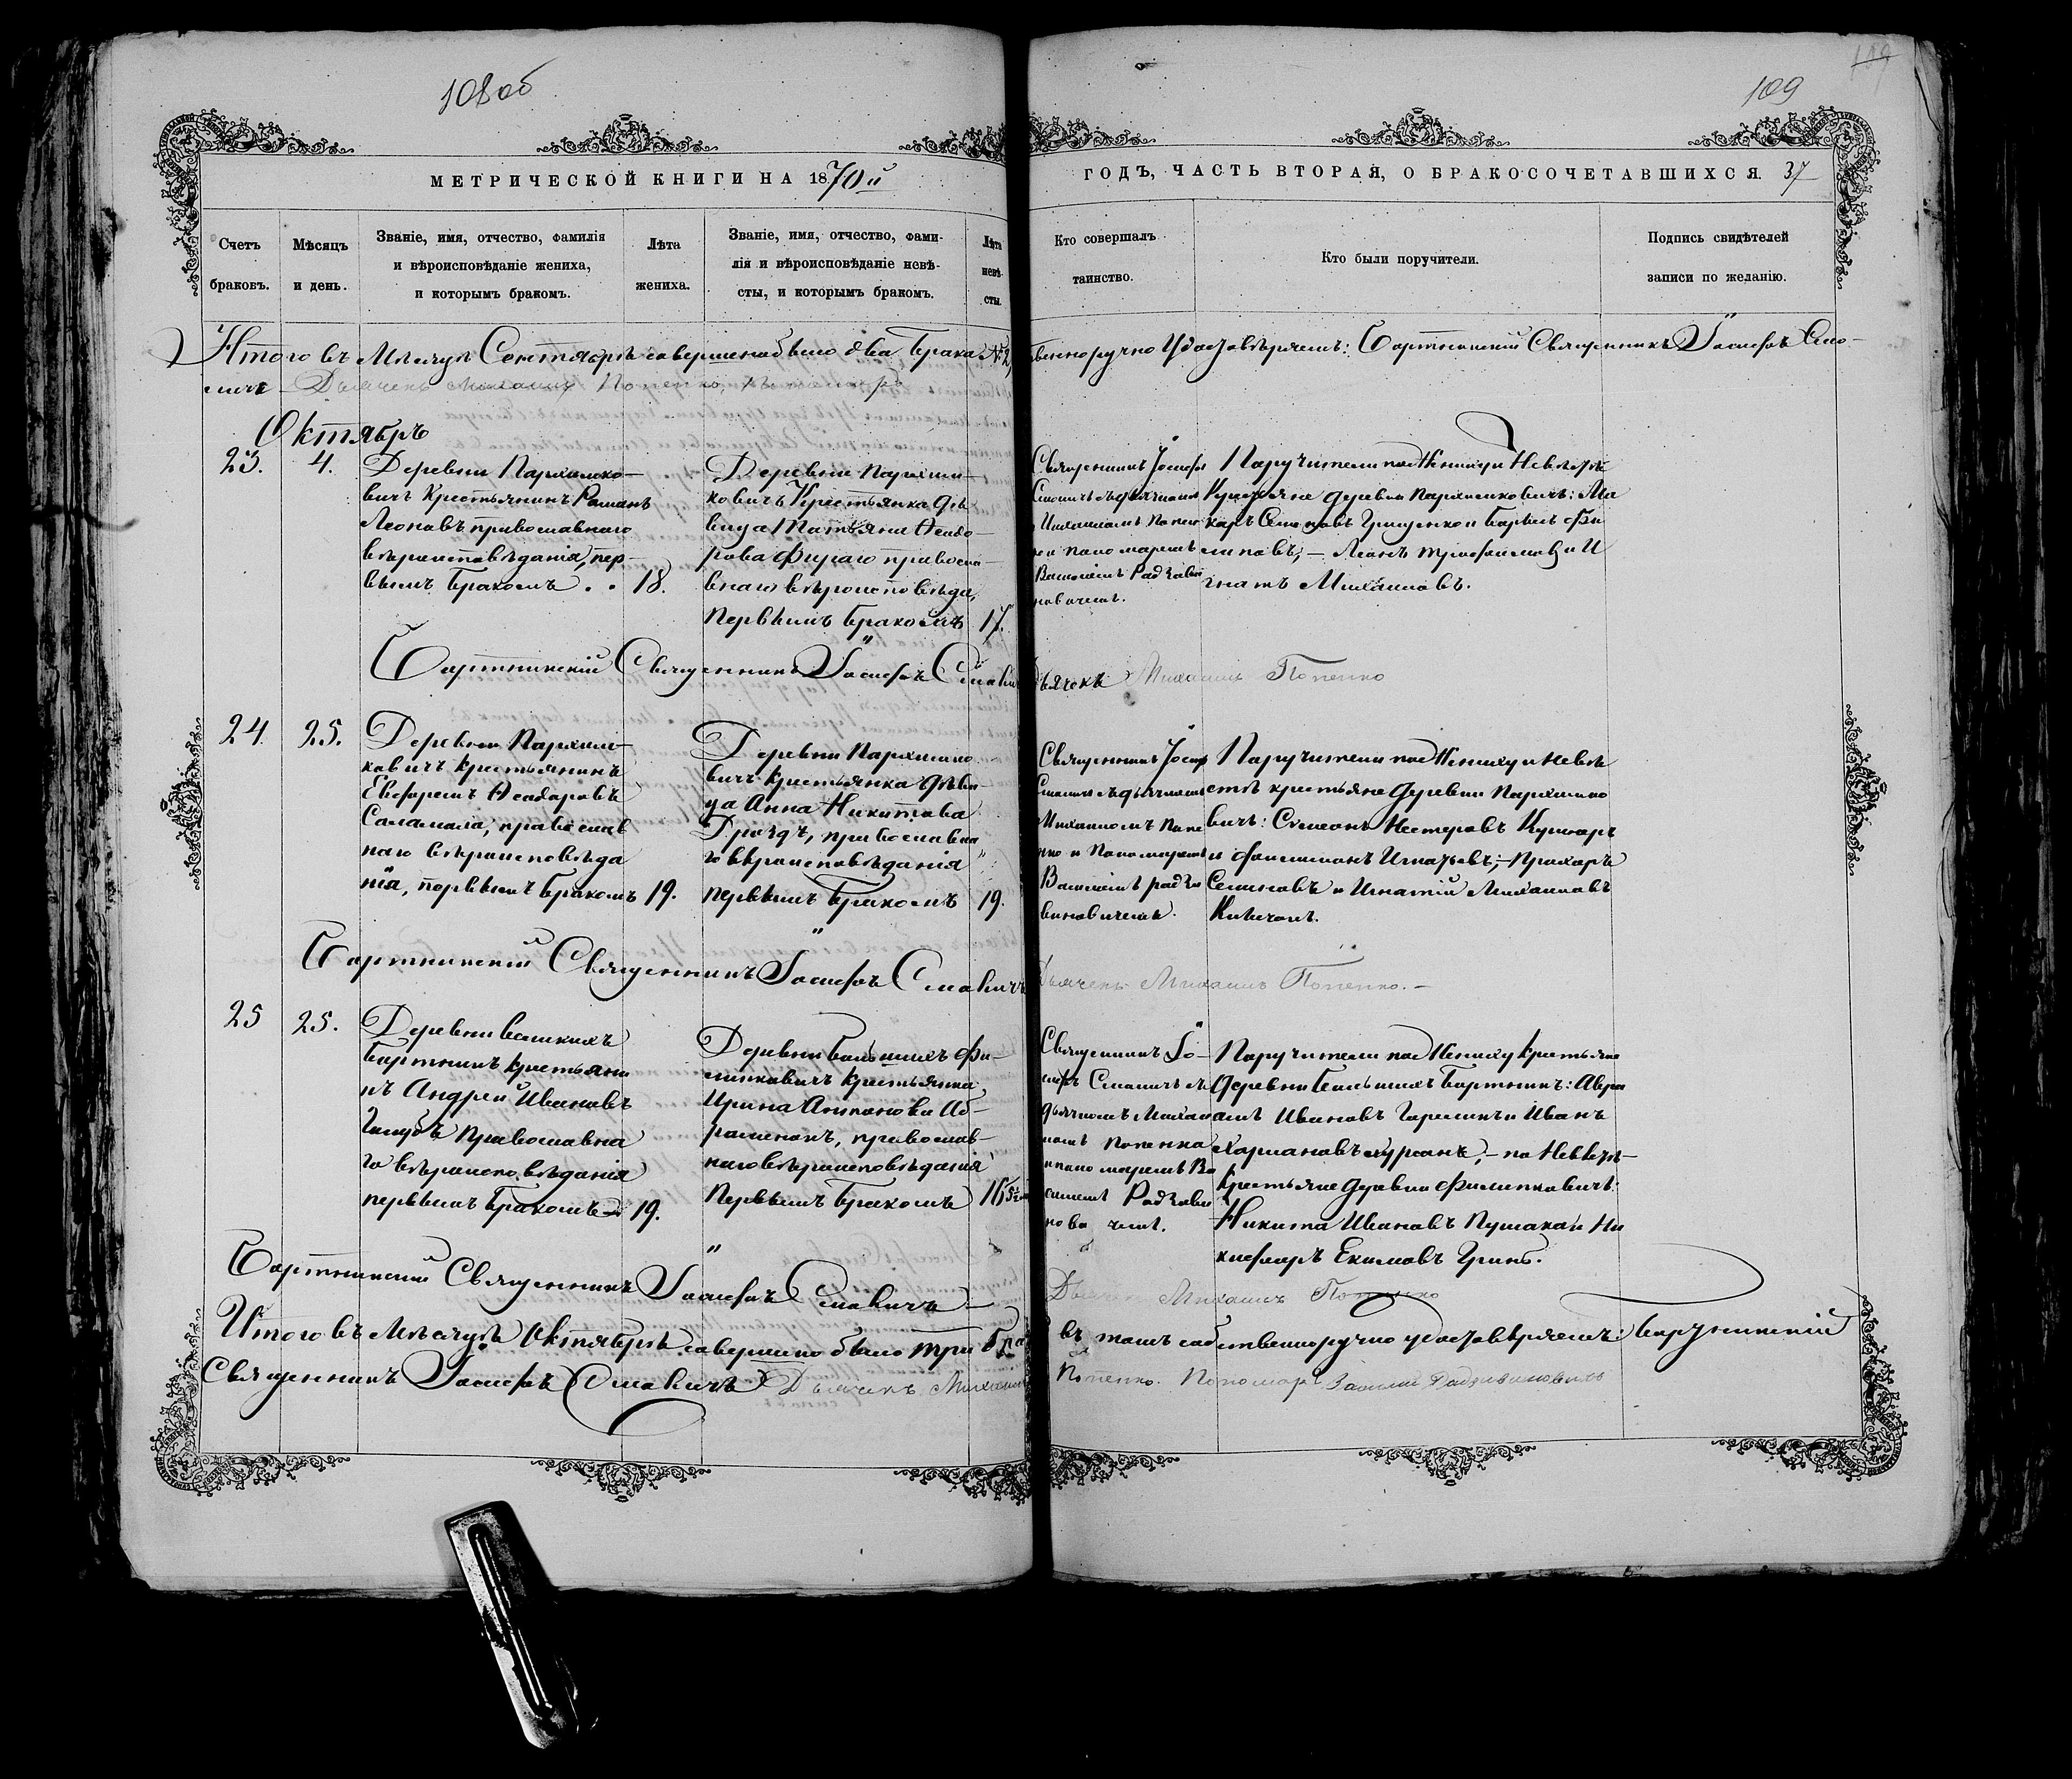 108 об
109
МЕТРИЧЕСКОЙ КНИГИ НА 1870й
ГОДЪ, ЧАСТЬ ВТОРАЯ, О БРАКОСОЧЕТАВШИХСЯ. 37
Счетъ браковъ.
Мѣсяцъ и день.
Званіе, имя, отчество, фамилія
и вѣроисповѣданіе жениха,
и которымъ бракомъ.
Лѣта жениха.
Званіе, имя, отчество, фами-
лія и вѣроисповѣданіе невѣ-
сты, и которымъ бракомъ.
Лѣта невѣ- сты.
Кто совершалъ таинство.
Кто были поручители.
Подпись свидѣтелей
записи по желанію.
Итого въ Мѣсяцѣ Сентябрѣ совершено было два Брака №2,
ственноручно Удостовѣряемъ: Бортникскій Священникъ Іосифъ Смо-
личъ Дьячекъ Михаилъ Попенко,
Октябрь
23.
4.
Деревни Пархимко-
вичъ Крестьянинъ Романъ
Леоновъ православнаго
вѣроисповѣданія, пер-
вымъ бракомъ . . 18.
Деревни Пархим-
ковичъ Крестьянка дѣ-
вица Татьяна Ѳеодо-
рова православ-
наго вѣроисповѣда,
первымъ бракомъ 17.
Священникъ Іосифъ
Михаиломъ Попен
ко и пономаремъ
Василіемъ Радзиви
новичемъ.
Паручители по Жениху и Невѣстѣ
Крестьяне деревни Пархимковичъ: Ма
каръ Семеновъ Грищенко и
липовъ, – Леонъ Трофимовъ и И
гнатъ Михаиловъ.
Бортникскій Священникъ Іосифъ
Дьячекъ Михаилъ Попенко
24.
25.
Деревни Пархим-
ковичъ крестьянинъ
Евфремъ Ѳеодоровъ
Саламаха, православ
наго вѣроисповѣда
нія, первымъ бракомъ 19.
Деревни Пархимко
вичъ крестьянка дѣви-
ца Анна Никитова
Дроздъ, православна
го вѣроисповѣданія
первымъ бракомъ 19.
Священникъ Іосиф
Михаиломъ Попе
нко и Пономаремъ
Василіемъ радзи
виновичемъ.
Паручители по Жениху и Невѣ
стѣ крестьяне деревни Пархимко
вичъ: Симеонъ Нестеровъ
и Филимонъ Игнатьевъ; – Прохоръ
Семеновъ и Игнатій Михаиловъ
Бортникскій Священникъ Іосифъ
Дьячекъ Михаилъ Попенко. –
25
25.
Деревни великихъ
Бортникъ крестьяни
нъ Андрей Ивановъ
Голубъ Православна
го вѣроисповѣданія
первымъ бракомъ – 19.
Деревни Большихъ Фи-
липковичъ крестьянка
Ирина Антонова Аб-
раменокъ, православ-
наго вѣроисповѣданія
Первымъ бракомъ 16
Священникъ Іо-
сифъ
дьячкомъ Михаи
ломъ Попенка
и пономаремъ Ва
силіемъ Радзиви
нови чемъ.
Паручители по Жениху крестьяне
деревни Большихъ Бортникъ: Авра
амъ Ивановъ Горелинъ и Иванъ
– по Невѣстѣ –
Крестьяне деревни Филипковичъ:
Никита Ивановъ и Ни
кифоръ Екимовъ Гринь.
Бортникскій Священникъ Іосифъ
Дьячекъ Михаилъ Попенко
Итого въ Мѣсяцѣ Октябрѣ совершено было три бра
въ томъ собственноручно удостовѣряемъ: Бортникскій
Священникъ Іосифъ Дьячекъ Михаилъ
Попенко. Пономарь Василій Радзивиновичъ